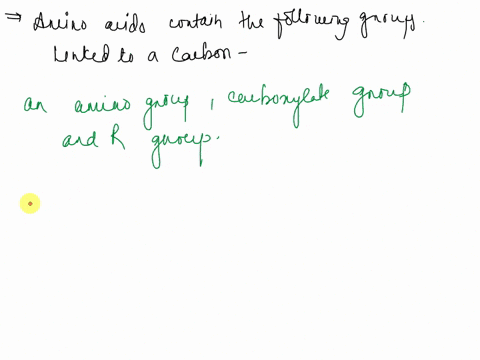 ⇒ Amino acids contain the following groups.
linked to a carbon –
an amino group, carboxylate group
and R group.